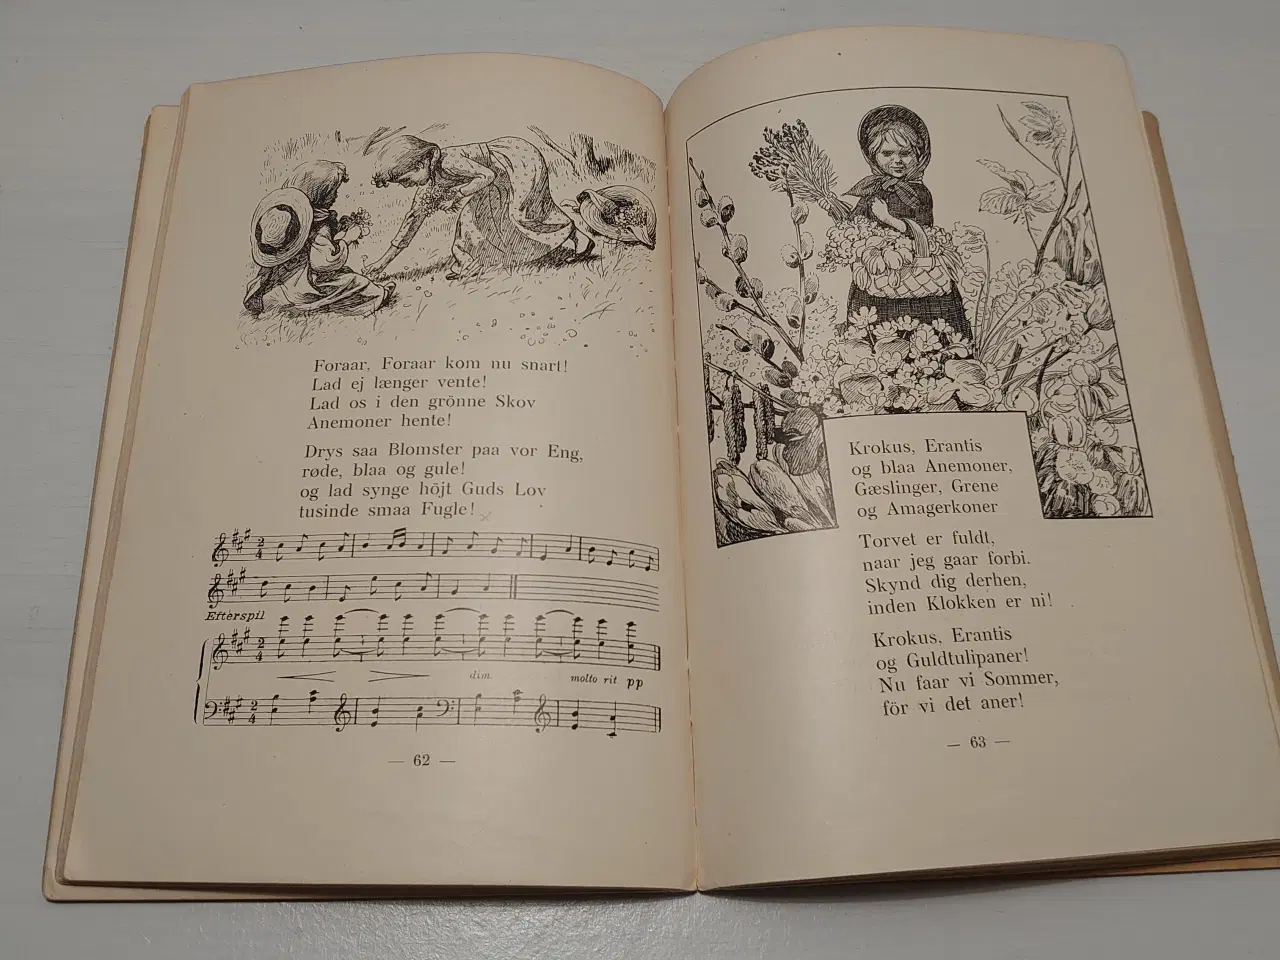 Foraar, Foraar kom nu snart!
Lad ej længer vente!
Lad os i den grönne Skov
Anemoner hente!
Drys saa Blomster paa vor Eng,
røde, blaa og gule!
og lad synge höjt Guds Lov
tusinde smaa Fugle!
2
4
Efterspil
2
4
dim.
molto rit pp
2
4
— 62 —
Krokus, Erantis
og blaa Anemoner,
Gæslinger, Grene
og Amagerkoner
Torvet er fuldt,
naar jeg gaar forbi.
Skynd dig derhen,
inden Klokken er ni!
Krokus, Erantis
og Guldtulipaner!
Nu faar vi Sommer,
för vi det aner!
— 63 —